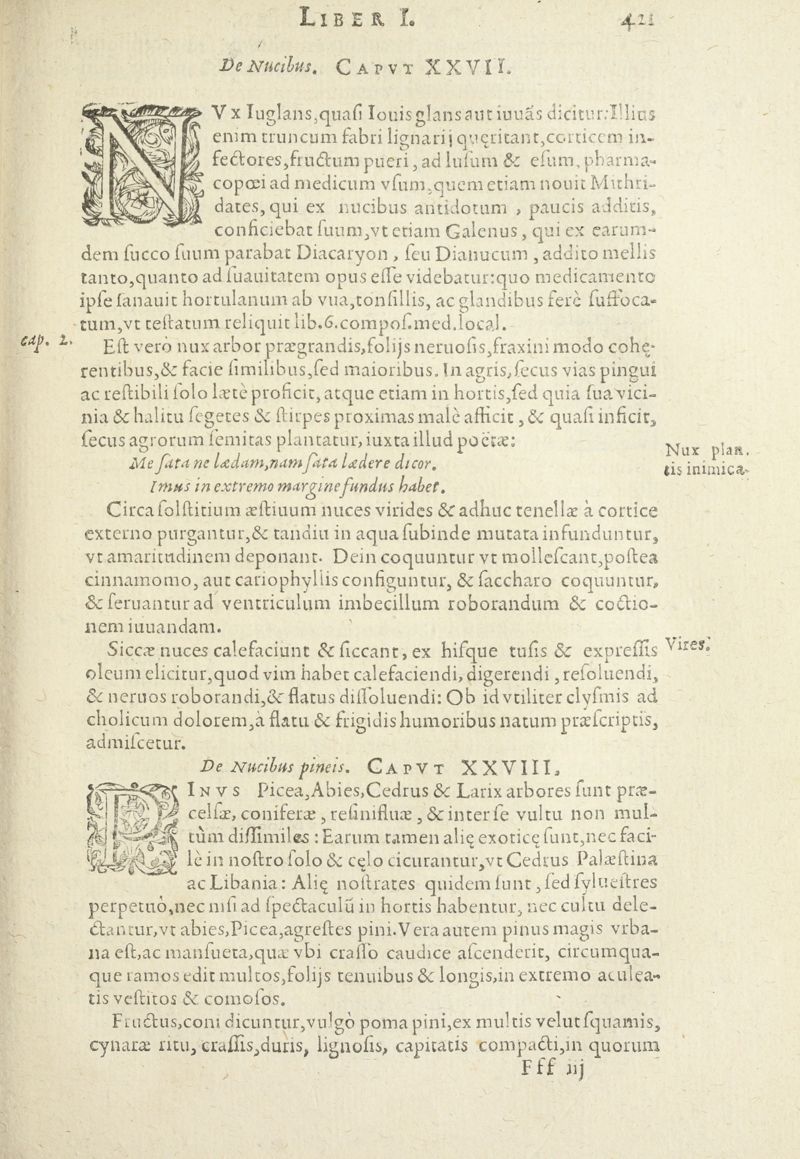 LIBER I. 421
De Nucibus. CAPVT XXVII.
NVx Iuglans,quasi Iouis glans aut iuuãs dicitur:Illius
enim truncum fabri lignarij quęritant,corticem in-
fectores,fructum pueri, ad lusum & esum, pharma-
copœi ad medicum vsum,quem etiam nouit Mithri-
dates, qui ex nucibus antidotum , paucis additis,
conficiebat suum,vt etiam Galenus, qui ex earum-
dem succo suum parabat Diacaryon , seu Dianucum , addito mellis
tanto,quanto ad suauitatem opus esse videbatur:quo medicamento
ipse sanauit hortulanum ab vua,tonsillis, ac glandibus ferè suffoca-
tum,vt testatum reliquit lib.6.compos.med.local.
cap. 2.
Est verò nux arbor prægrandis,folijs neruosis,fraxini modo cohę-
rentibus,& facie similibus,sed maioribus. In agris,secus vias pingui
ac restibili solo lætè proficit, atque etiam in hortis,sed quia sua vici-
nia & halitu segetes & stirpes proximas malè afficit, & quasi inficit,
secus agrorum semitas plantatur, iuxta illud poëtæ:
Nux plan.
tis inimica.
Me fata ne lædam,nam fata lædere dicor,
Imus in extremo margine fundus habet.
Circa solstitium æstiuum nuces virides & adhuc tenellæ à cortice
externo purgantur,& tandiu in aqua subinde mutata infunduntur,
vt amaritudinem deponant. Dein coquuntur vt mollescant,postea
cinnamomo, aut cariophyllis configuntur, & saccharo coquuntur,
& seruantur ad ventriculum imbecillum roborandum & coctio-
nem iuuandam.
Siccæ nuces calefaciunt & siccant, ex hisque tusis & expressis
Vires.
oleum elicitur,quod vim habet calefaciendi, digerendi , resoluendi,
& neruos roborandi,& flatus dissoluendi: Ob id vtiliter clysmis ad
cholicum dolorem,à flatu & frigidis humoribus natum præscriptis,
admiscetur.
De Nucibus pineis. CAPVT XXVIII.
PINVS Picea,Abies,Cedrus & Larix arbores sunt præ-
celsæ, coniferæ , resinifluæ , & inter se vultu non mul-
tùm dissimiles : Earum tamen alię exoticę sunt,nec faci-
lè in nostro solo & cęlo cicurantur,vt Cedrus Palæstina
ac Libania: Alię nostrates quidem sunt, sed syluestres
perpetuò,nec nisi ad spectaculũ in hortis habentur, nec cultu dele-
ctantur,vt abies,Picea,agrestes pini. Vera autem pinus magis vrba-
na est,ac mansueta,quæ vbi crasso caudice ascenderit, circumqua-
que ramos edit multos,folijs tenuibus & longis,in extremo aculea-
tis vestitos & comosos.
Fructus,coni dicuntur,vulgò poma pini,ex multis velut squamis,
cynaræ ritu, crassis,duris, lignosis, capitatis compacti,in quorum
Fff iij